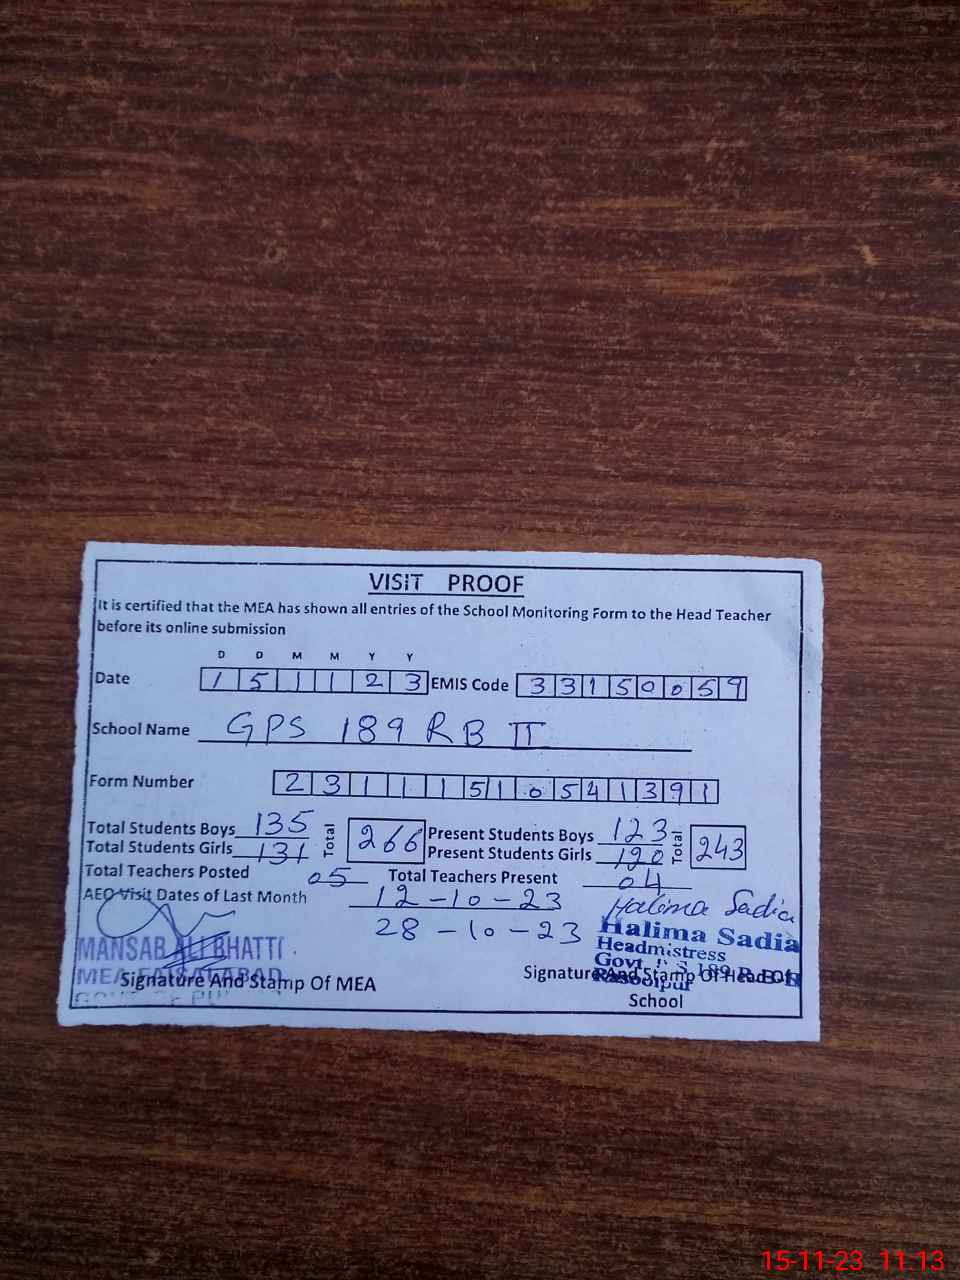 VISIT PROOF
It is certified that the MEA has shown all entries of the School Monitoring Form to the Head Teacher
before its online submission
D D M M Y Y
Date 1 5 1 1 2 3 EMIS Code 3 3 1 5 0 0 5 9
School Name GPS 189 RB II
Form Number 2 3 1 1 1 5 1 0 5 4 1 3 9 1
Total Students Boys 135 Total 266 Present Students Boys 123 Total 243
Total Students Girls 131 Present Students Girls 120
Total Teachers Posted 05 Total Teachers Present 04
AEO Visit Dates of Last Month 12-10-23
28-10-23
Halima Sadia
MANSAB ALI BHATTI
MEA FAISALABAD
Signature And Stamp Of MEA
Halima Sadia
Headmistress
Govt P S 189 R B-II
Rasoolpur
Signature And Stamp Of Head Of
School
15-11-23 11:13